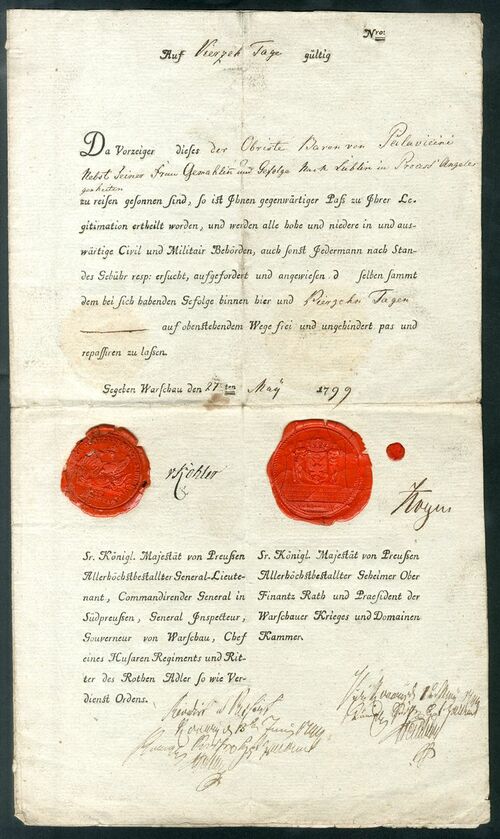 Nro:
Auf Vierzeh Tage gültig
Da Vorzeiger dieses der Obriste Baron von Palavicini
Nebst Seiner Frau Gemahlin und Gefolge Nach Lublin in Process Angele
genheiten
zu reisen gesonnen sind, so ist Ihnen gegenwärtiger Paß zu Ihrer Le-
gitimation ertheilt worden, und werden alle hohe und niedere in und aus-
wärtige Civil und Militair Behörden, auch sonst Jedermann nach Stan-
des Gebühr resp: ersucht, aufgefordert und angewiesen d selben sammt
dem bei sich habenden Gefolge binnen hier und Vierzehn Tagen
auf obenstehendem Wege frei und ungehindert pas und
repassiren zu laßen.
Gegeben Warschau den 27ten May 1799
v Köhler
Hoym
Sr. Königl. Majestät von Preußen
Allerhöchstbestallter General-Lieute-
nant, Commandirender General in
Südpreußen, General Inspecteur,
Gouverneur von Warschau, Chef
eines Husaren Regiments und Rit-
ter des Rothen Adler so wie Ver-
dienst Ordens.
Sr. Königl. Majestät von Preußen
Allerhöchstbestallter Geheimer Ober
Finants Rath und Praesident der
Warschauer Krieges und Domainen
Kammer.